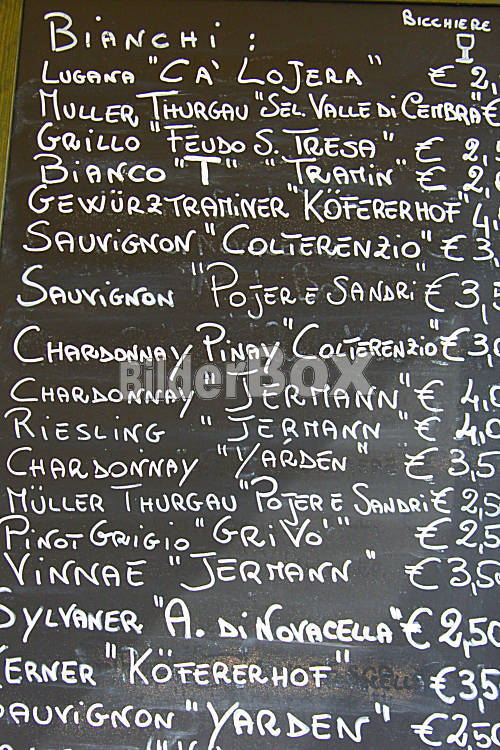 BICCHIERE
BIANCHI :
LUGANA "CA' LOJERA" € 2,
MULLER THURGAU "SEL. VALLE DI CEMBRA" €
GRILLO "FEUDO S. TRESA" € 2,
BIANCO "T" "TRAMIN" € 2,
GEWÜRZTRAMINER "KÖFERERHOF" 4,
SAUVIGNON "COLTERENZIO" € 3,
SAUVIGNON "POJER E SANDRI" € 3,5
CHARDONNAY PINAY "COLTERENZIO" € 3,0
BilderBOX
CHARDONNAY "JERMANN" € 4,0
RIESLING "JERMANN" € 4,0
CHARDONNAY "YARDEN" € 3,5
MÜLLER THURGAU "POJER E SANDRI € 2,5
PINOT GRIGIO "GRIVO'" € 2,5
VINNAE "JERMANN" € 3,50
SYLVANER "A. DI NOVACELLA" € 2,50
KERNER "KÖFERERHOF" € 3,5
SAUVIGNON "YARDEN" € 2,50